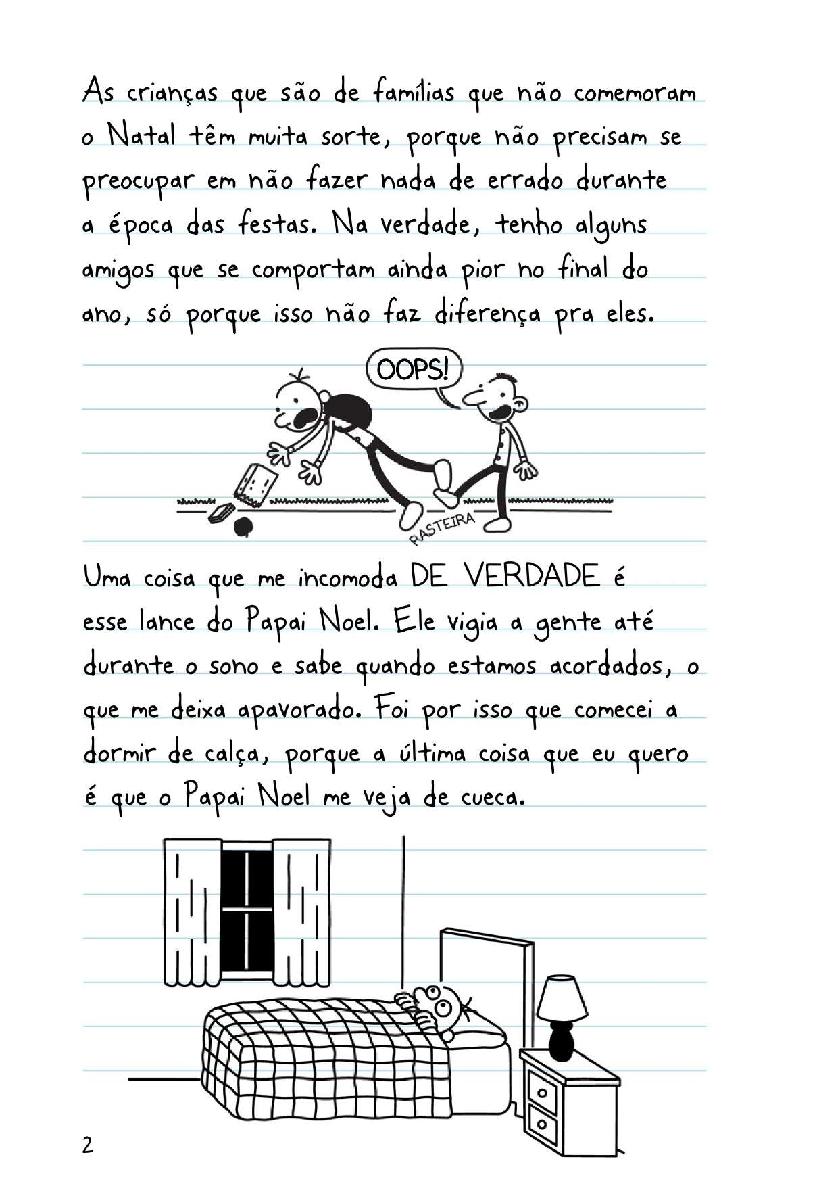 As crianças que são de famílias que não comemoram
o Natal têm muita sorte, porque não precisam se
preocupar em não fazer nada de errado durante
a época das festas. Na verdade, tenho alguns
amigos que se comportam ainda pior no final do
ano, só porque isso não faz diferença pra eles.
OOPS!
RASTEIRA
Uma coisa que me incomoda DE VERDADE é
esse lance do Papai Noel. Ele vigia a gente até
durante o sono e sabe quando estamos acordados, o
que me deixa apavorado. Foi por isso que comecei a
dormir de calça, porque a última coisa que eu quero
é que o Papai Noel me veja de cueca.
2